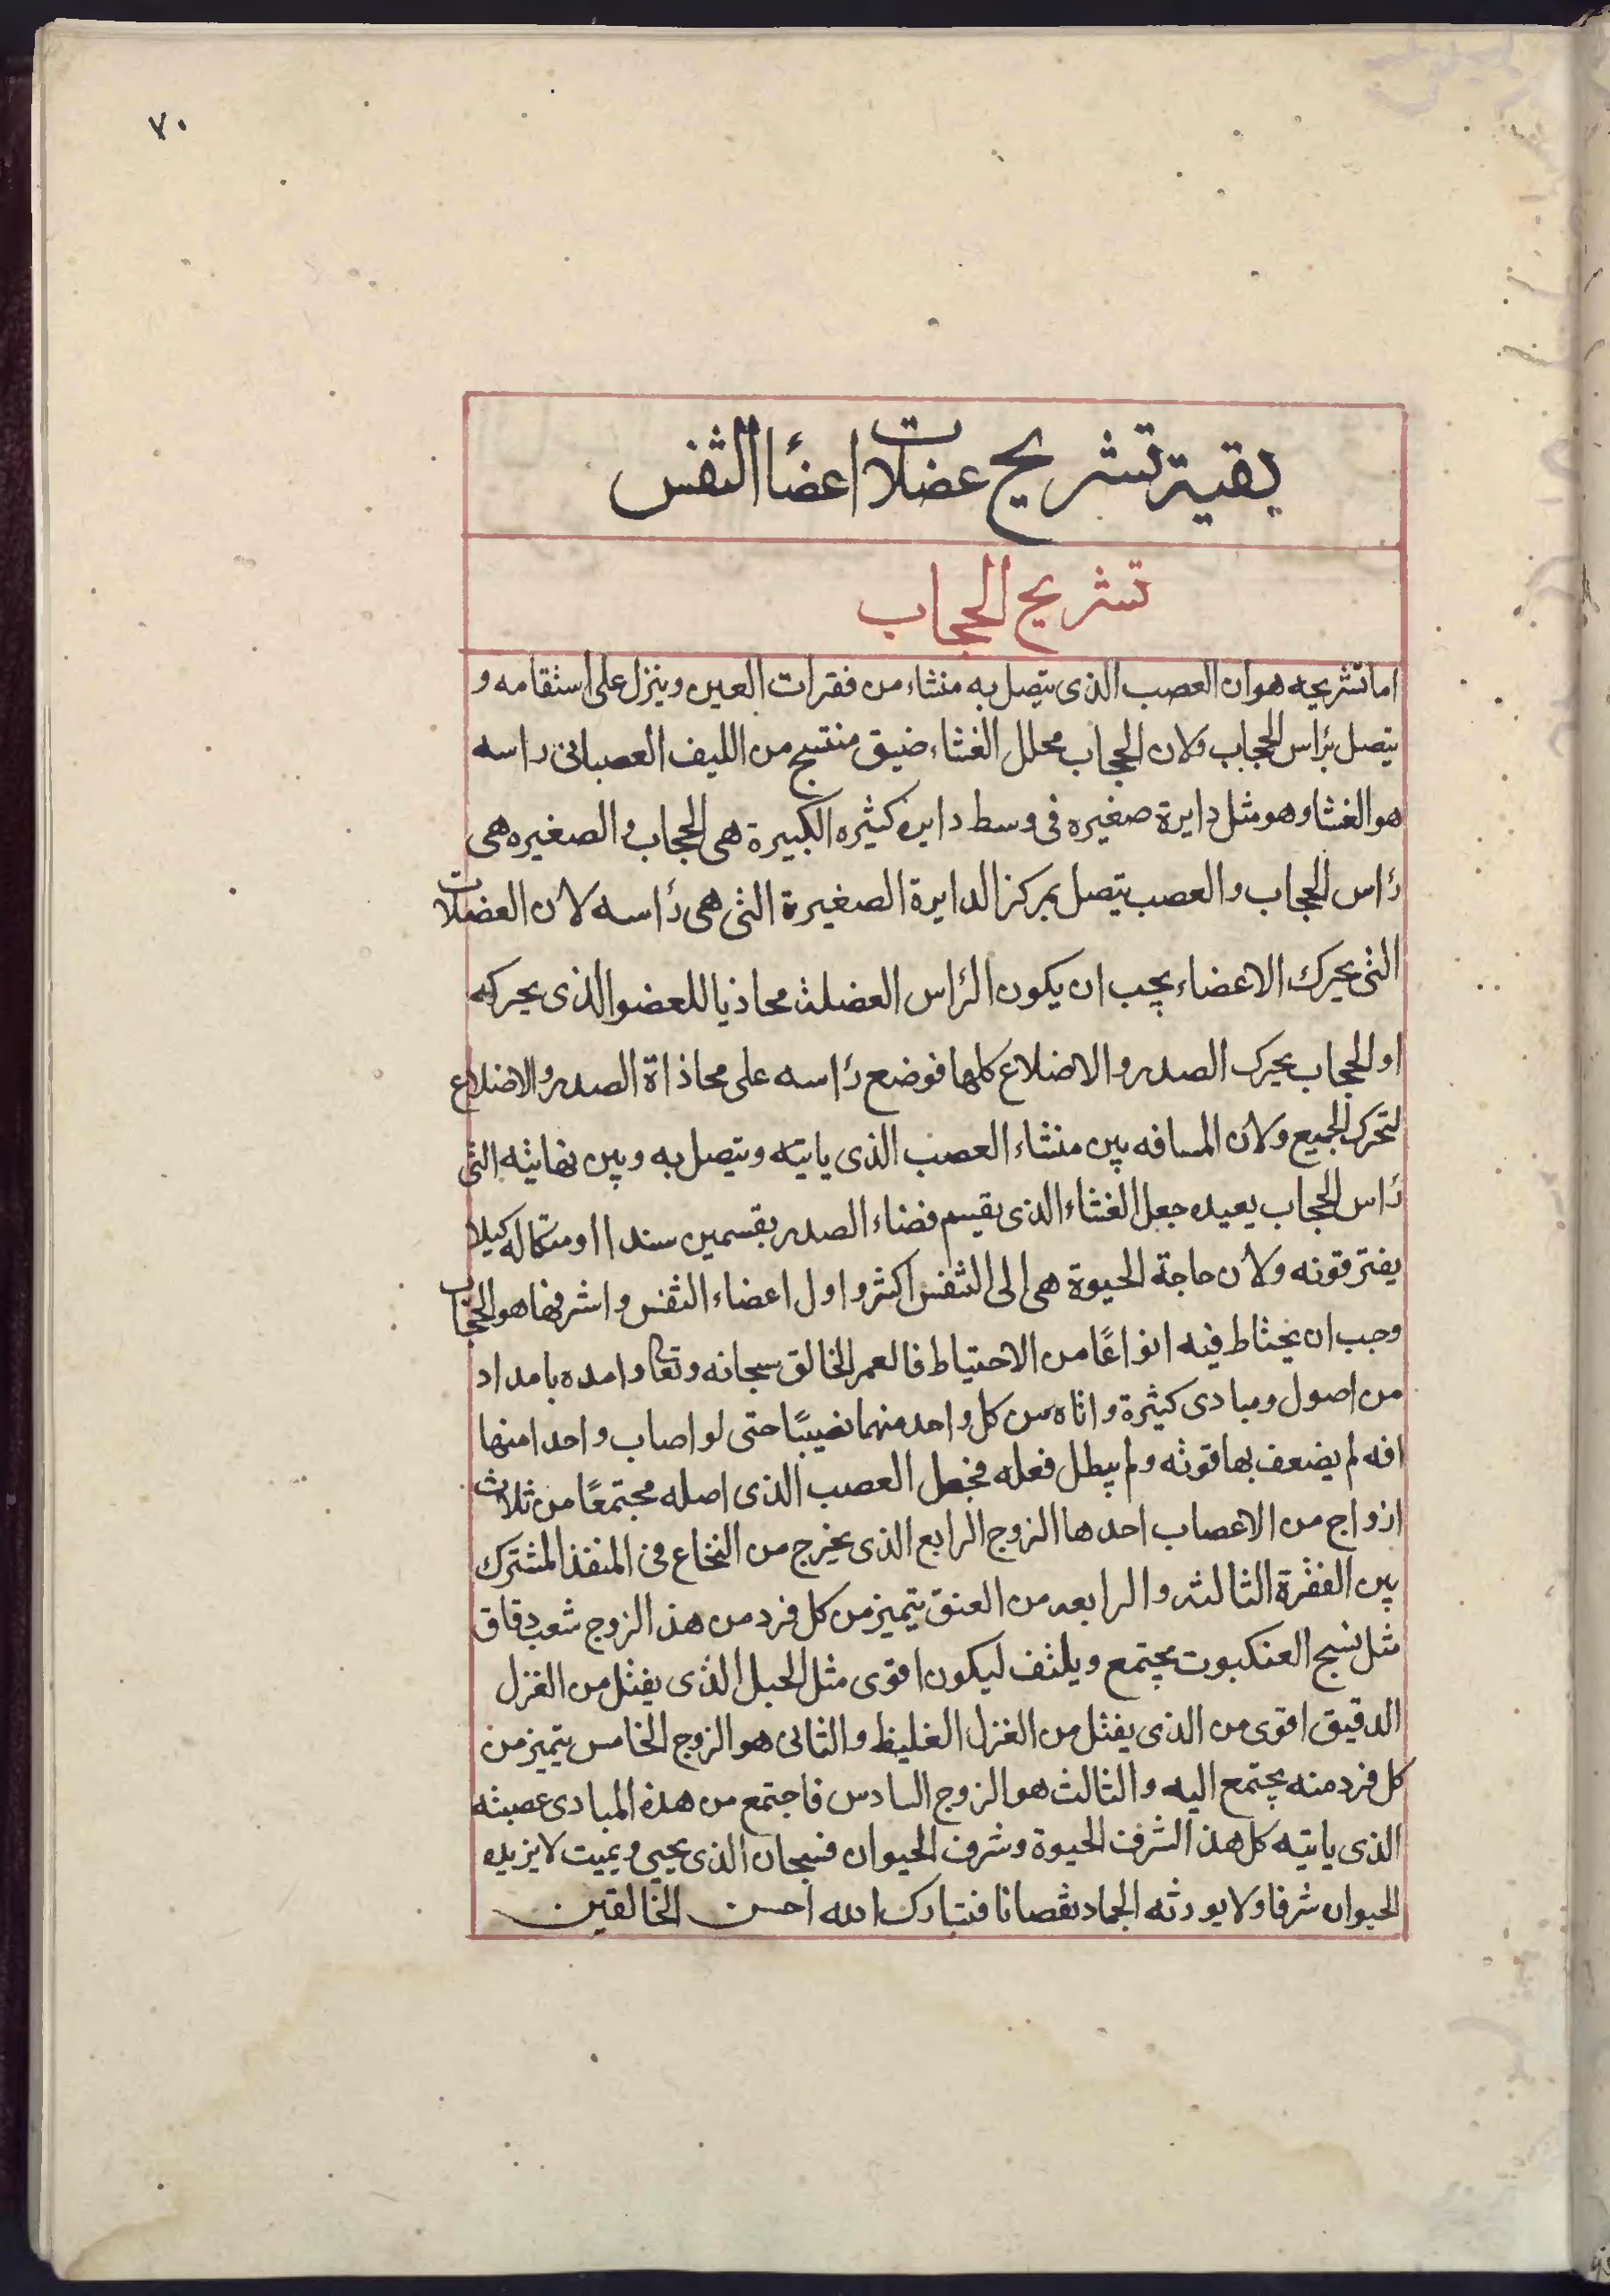 ٧٠
بقية تشريح عضلات اعضأ الثفس
تشريح الحجاب
اما تشريحه هو ان العصب الذى يتصل به منشاء من فقرات العين وينزل على استقامه و
يتصل برأس الحجاب ولان الحجاب محلل الغشاء ضيق منتسج من الليف العصبانى راسه
هو الغشا وهو مثل دايرة صغيره فى وسط دايره كثيره الكبيرة هى الحجاب والصغيره هى
رأس الحجاب والعصب يتصل بمركز الدايرة الصغيرة التى هى رأسه لان العضلات
التى يحرك الاعضاء يجب ان يكون الرأس العضلة محاذيا للعضو الذى يحركه
او الحجاب يحرك الصدر والاضلاع كلها فوضع رأسه على محاذاة الصدر والاضلاع
لتحرك الجميع ولان المسافه بين منشاء العصب الذى ياتيه ويتصل به وبين نهايته التى
رأس الحجاب بعيده جعل الغشاء الذى يقسم فضاء الصدر بقسمين سندا او متكاله كيلا
يفترقونه ولأن حاجة الحيوة هى الى التنفس اكثر واول اعضاء التفس واشرفها هو الحجاب
وجب ان يحتاط فيه انواعًا من الاحتياط فالعمر الخالق سبحانه وتعا وامده بامداد
من اصول ومبادى كثيرة واتاه من كل واحد منهما نصيبًا حتى لو اصاب واحدا منها
افه لم يضعف بها قوته ولم يبطل فعله فجعل العصب الذى اصله مجتمعًا من ثلاث
ازواج من الاعصاب احدها الزوج الرابع الذى يخرج من النخاع فى المنفذ المشترك
بين الفقرة الثالثه والرابعه من العنق يتميز من كل فرد من هذ الزوج شعب دقاق
مثل نسج العنكبوت يجتمع ويلتف ليكون اقوى مثل الحبل الذى يفتل من الغزل
الدقيق اقوى من الذى يفتل من الغزل الغليظ والثانى هو الزوج الخامس يتميز من
كل فرد منه يجتمع اليه والثالث هو الزوج السادس فاجتمع من هذه المبادى عصبته
الذى ياتيه كل هذ الشرف الحيوة وشرف الحيوان فسبحان الذى يحيى ويميت لا يزيده
الحيوان شرفا ولا يورثه الجماد نقصانا فتبارك الله احسن الخالقين